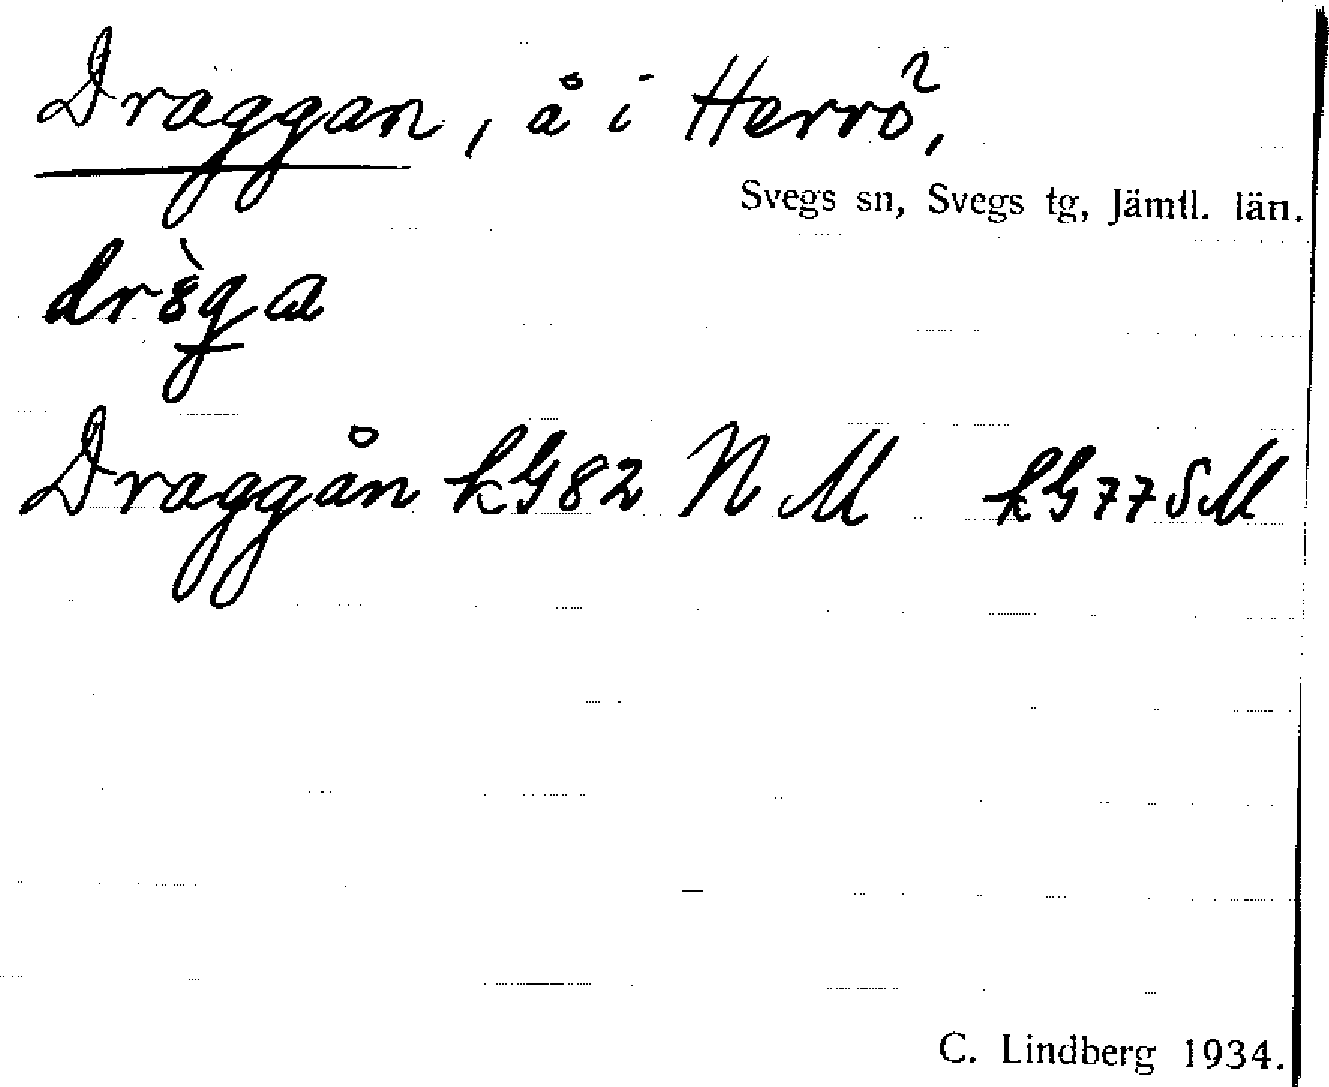 Draggan, å i Herrö,
Svegs sn, Svegs tg, Jämtl. län.
Draggån kG82 NM kG77SM
C. Lindberg 1934.